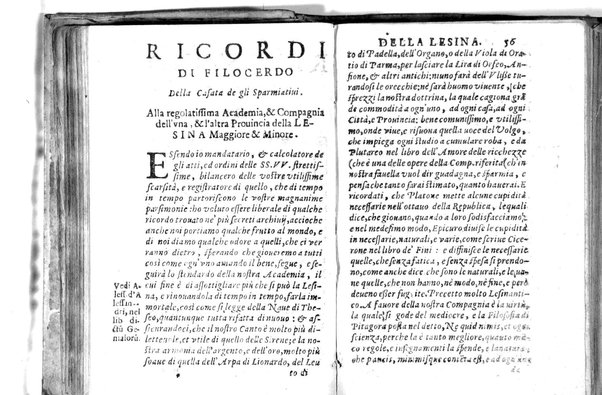 RICORDI
DI FILOCERDO
Della Casata de gli Sparmiatiui.
Alla regolatissima Academia, & Compagnia
dell'vna, & l'altra Prouincia della LE-
SINA Maggiore & Minore.
ESsendo io mandatario, & calcolatore de
gli atti, ed ordini delle SS. VV. strettis-
sime, bilancero delle vostre vtilissime
scarsità, e registratore di quello, che di tempo
in tempo partoriscono le vostre magnanime
parsimonie: ho voluto essere liberale di qualche
ricordo trouato ne' più secreti archiuij, accioche
anche noi portiamo qualche frutto al mondo, e
di noi diamo qualche odore a quelli, che ci ver
ranno dietro, sperando che gioueremo a tutti
cosi come ogn'vno amando il bene, segue, e se-
guirà lo stendardo della nostra Academia, il
cui fine è di assottigliare più che si può la Lesi-
na, e rinouandola di tempo in tempo, farla im-
mortale, cosi come si legge della Naue di The-
seo, quantunque tutta rifatta di nuouo: & as-
sicurandeci, che il nostro Canto è molto più di-
letteuole, et vtile di quello delle Sirene; e la no-
stra armoma dell'argento, e dell'oro, molto più
soaue di quella dell'Arpa di Lionardo, del Leu
to di
Vedi A-
less. d'A
lessan-
dri, nel
lib. di-
ctũ Ge
malorũ.
DELLA LESINA. 56
to di Padella, dell'Organo, o della Viola di Ora-
tio di Parma, per lasciare la Lira di Orfeo, An-
fione, & altri antichi; niuno farà dell'Vlisse tu-
randosi le orecchie; nè farà buomo viuente, che
sprezzi la nostra dottrina, la quale cagiona grã
de commodità a ogni vno, ad ogni casa, ad ogni
Città, e Prouincia; bene comunissimo, e vtilis-
simo, onde viue, e risuona quella uoce del Volgo,
che impiega ogni studio a cumulare roba, e da
Plutarco nel libro dell'Amore delle ricchezze
(che è una delle opere della Comp. riferita) che in
nostra fauella vuol dir guadagna, e sparmia, e
pensa che tanto farai stimato, quanto hauerai. E
ricordati, che Platone mette alcune cupidità
necessarie nell'ottauo della Republica, le quali
dice, che giouano, quando a loro sodisfacciamo;
nel medesimo modo, Epicuro diuise le cupidità
in necessarie, naturali, e varie, come scriue Cice-
rone nel libro de' Fini: & e diffinisce necessarie
quelle, che senza fatica, e senza spesa si prendo-
no, come anche dice che sono le naturali, e le ua-
ne quelle, che non hanno, nè modo, nè fine, e però
deueno esser fuggite. Precetto molto Lesinanti-
co. A fauore della nostra Compagnia è la virtù,
la quale si gode del mediocre, e la Filosofia di
Pitagora posta nel detto, Ne quid nimis, et ogni
scienza, perche la è tanto megliore, quanto man
co regole, e insegnamenti la spende, e la natura,
che paucis, minimisque conteta est, e ad ogni